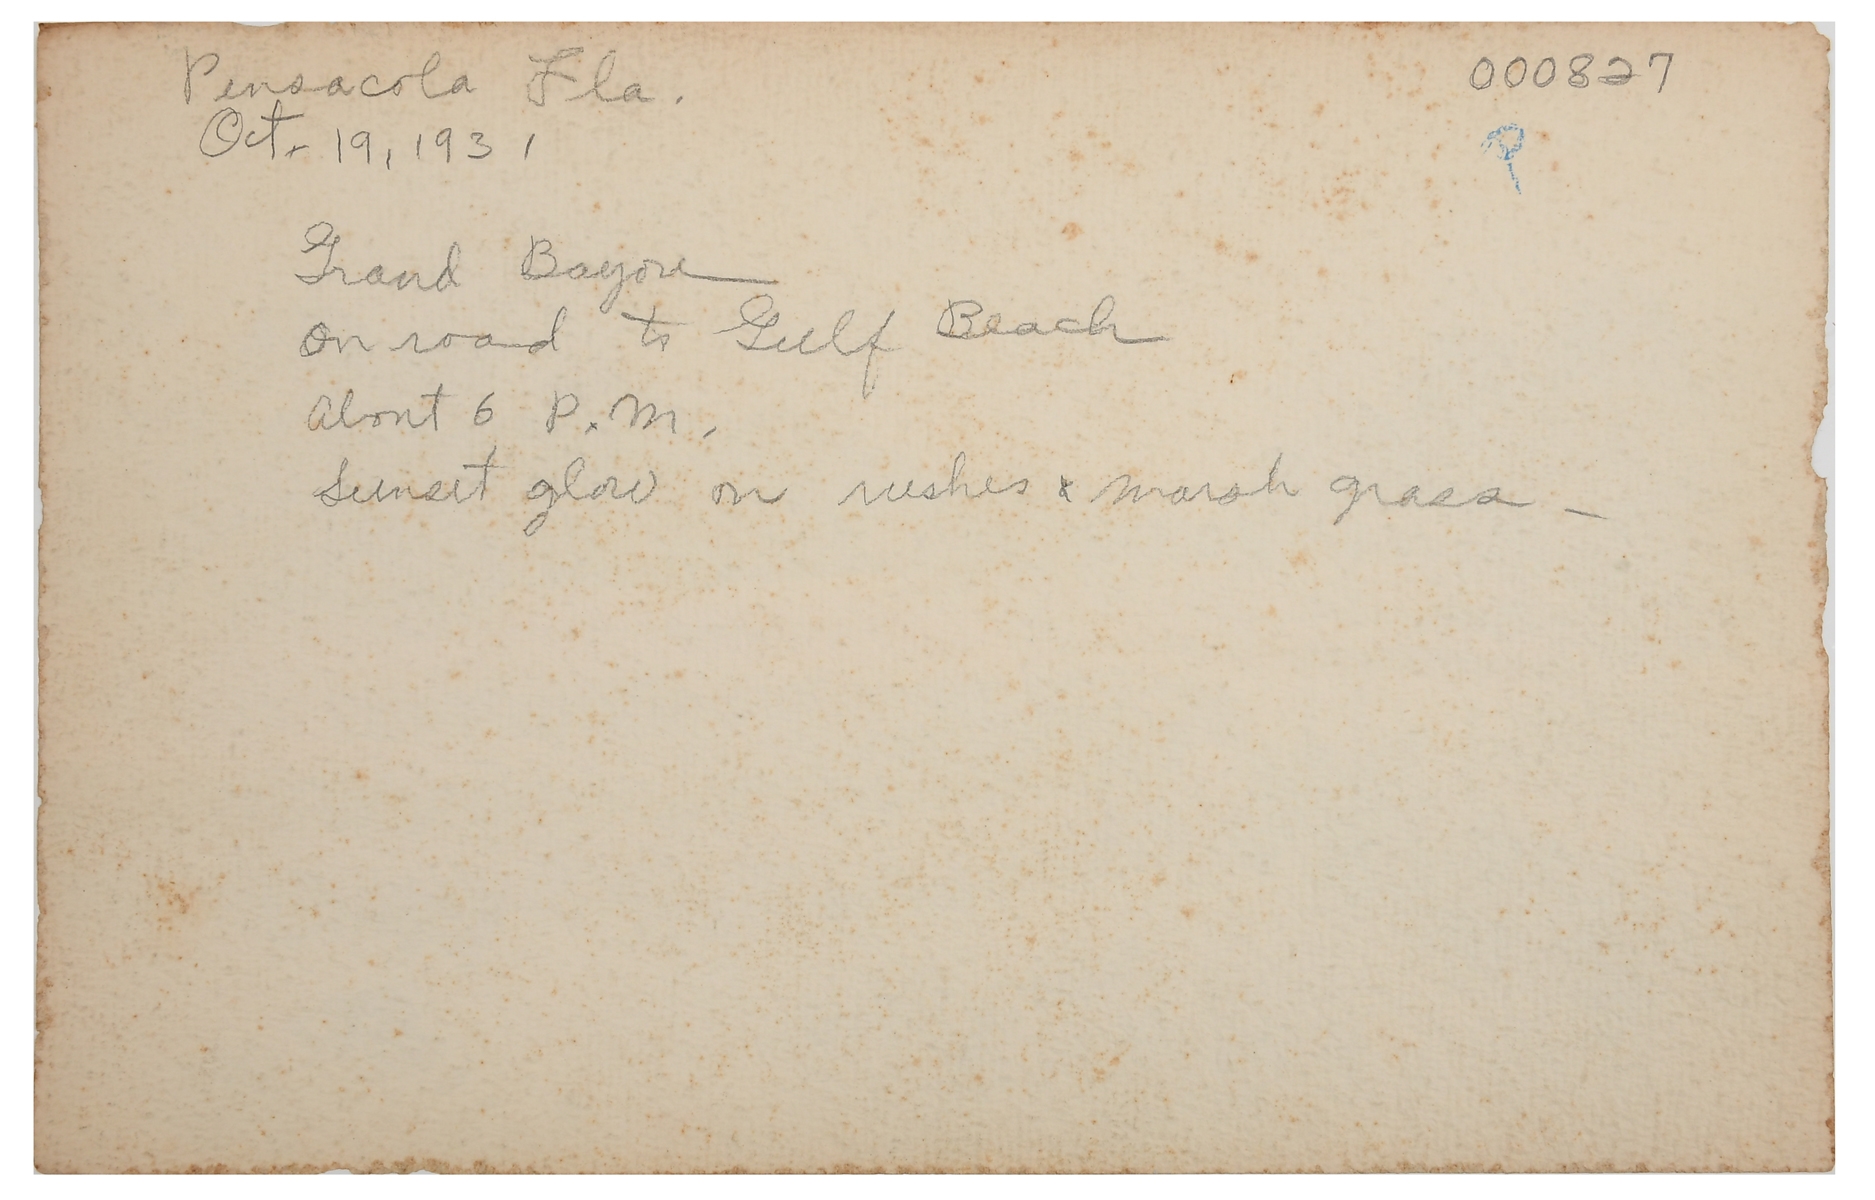 Pensacola Fla.
000827
Oct. 19, 1931
Grand Bayou
On road to Gulf Beach
About 6 P.M.
Sunset glow on rushes & marsh grass –